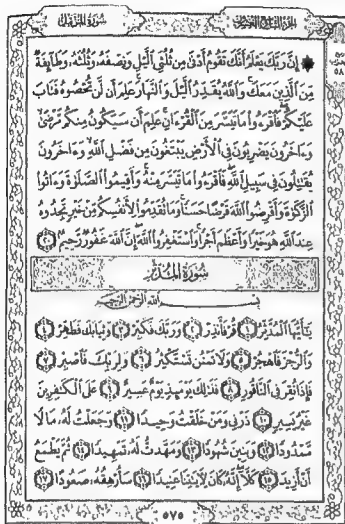 سُورَةُ المُزَّمِّل
الجُزْءُ التَّاسِعُ وَالعِشْرُونَ
إِنَّ رَبَّكَ يَعْلَمُ أَنَّكَ تَقُومُ أَدْنَىٰ مِن ثُلُثَيِ ٱلَّيْلِ وَنِصْفَهُۥ وَثُلُثَهُۥ وَطَآئِفَةٌ
مِّنَ ٱلَّذِينَ مَعَكَ وَٱللَّهُ يُقَدِّرُ ٱلَّيْلَ وَٱلنَّهَارَ عَلِمَ أَن لَّن تُحْصُوهُ فَتَابَ
عَلَيْكُمْ فَٱقْرَءُوا۟ مَا تَيَسَّرَ مِنَ ٱلْقُرْءَانِ عَلِمَ أَن سَيَكُونُ مِنكُم مَّرْضَىٰ
وَءَاخَرُونَ يَضْرِبُونَ فِى ٱلْأَرْضِ يَبْتَغُونَ مِن فَضْلِ ٱللَّهِ وَءَاخَرُونَ
يُقَٰتِلُونَ فِى سَبِيلِ ٱللَّهِ فَٱقْرَءُوا۟ مَا تَيَسَّرَ مِنْهُ وَأَقِيمُوا۟ ٱلصَّلَوٰةَ وَءَاتُوا۟
ٱلزَّكَوٰةَ وَأَقْرِضُوا۟ ٱللَّهَ قَرْضًا حَسَنًا وَمَا تُقَدِّمُوا۟ لِأَنفُسِكُم مِّنْ خَيْرٍ تَجِدُوهُ
عِندَ ٱللَّهِ هُوَ خَيْرًا وَأَعْظَمَ أَجْرًا وَٱسْتَغْفِرُوا۟ ٱللَّهَ إِنَّ ٱللَّهَ غَفُورٌ رَّحِيمٌ ٢٠
سُورَةُ المُدَّثِّر
بِسْمِ ٱللَّهِ ٱلرَّحْمَٰنِ ٱلرَّحِيمِ
يَٰٓأَيُّهَا ٱلْمُدَّثِّرُ ١ قُمْ فَأَنذِرْ ٢ وَرَبَّكَ فَكَبِّرْ ٣ وَثِيَابَكَ فَطَهِّرْ ٤
وَٱلرُّجْزَ فَٱهْجُرْ ٥ وَلَا تَمْنُن تَسْتَكْثِرُ ٦ وَلِرَبِّكَ فَٱصْبِرْ ٧
فَإِذَا نُقِرَ فِى ٱلنَّاقُورِ ٨ فَذَٰلِكَ يَوْمَئِذٍ يَوْمٌ عَسِيرٌ ٩ عَلَى ٱلْكَٰفِرِينَ
غَيْرُ يَسِيرٍ ١٠ ذَرْنِى وَمَنْ خَلَقْتُ وَحِيدًا ١١ وَجَعَلْتُ لَهُۥ مَالًا
مَّمْدُودًا ١٢ وَبَنِينَ شُهُودًا ١٣ وَمَهَّدتُّ لَهُۥ تَمْهِيدًا ١٤ ثُمَّ يَطْمَعُ
أَنْ أَزِيدَ ١٥ كَلَّآ إِنَّهُۥ كَانَ لِءَايَٰتِنَا عَنِيدًا ١٦ سَأُرْهِقُهُۥ صَعُودًا ١٧
٥٧٥